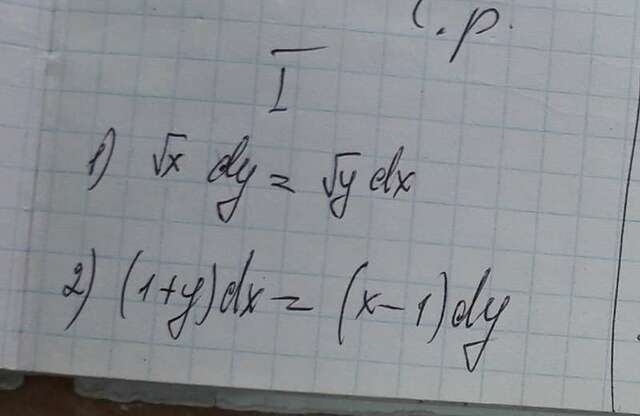 С.р.
I
1) √x dy = √y dx
2) (1+y)dx = (x-1)dy